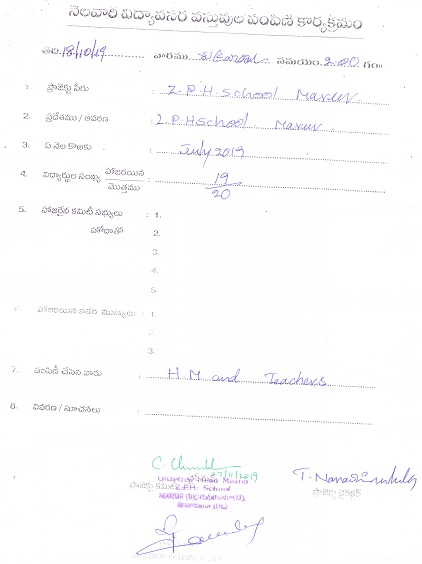 నెలవారి విద్యావసర వస్తువుల పంపిణీ కార్యక్రమం
తేది. 18/10/19 వారము సమయం. 2.00 గం॥
1. ప్రాజెక్టు పేరు : Z.P.H.school Marur
2. ప్రదేశము / ఆవరణ : Z.P.HSchool Marur
3. ఏ నెల కొఱకు : July 2019
4. విద్యార్థుల సంఖ్య హాజరయిన / మొత్తము : 19/20
5. హాజరైన కమిటీ సభ్యులు : 1.
హోదాతో 2.
3.
4.
5.
హాజరయిన ఇతర ముఖ్యులు : 1.
2.
3.
7. పంపిణీ చేసిన వారు : H.M and Teachers
8. వివరణ / సూచనలు :
27/11/2019
Head Master
ప్రాజెక్టు కమిటీ Z.P.H. School
ప్రాజెక్టు డైరెక్టర్